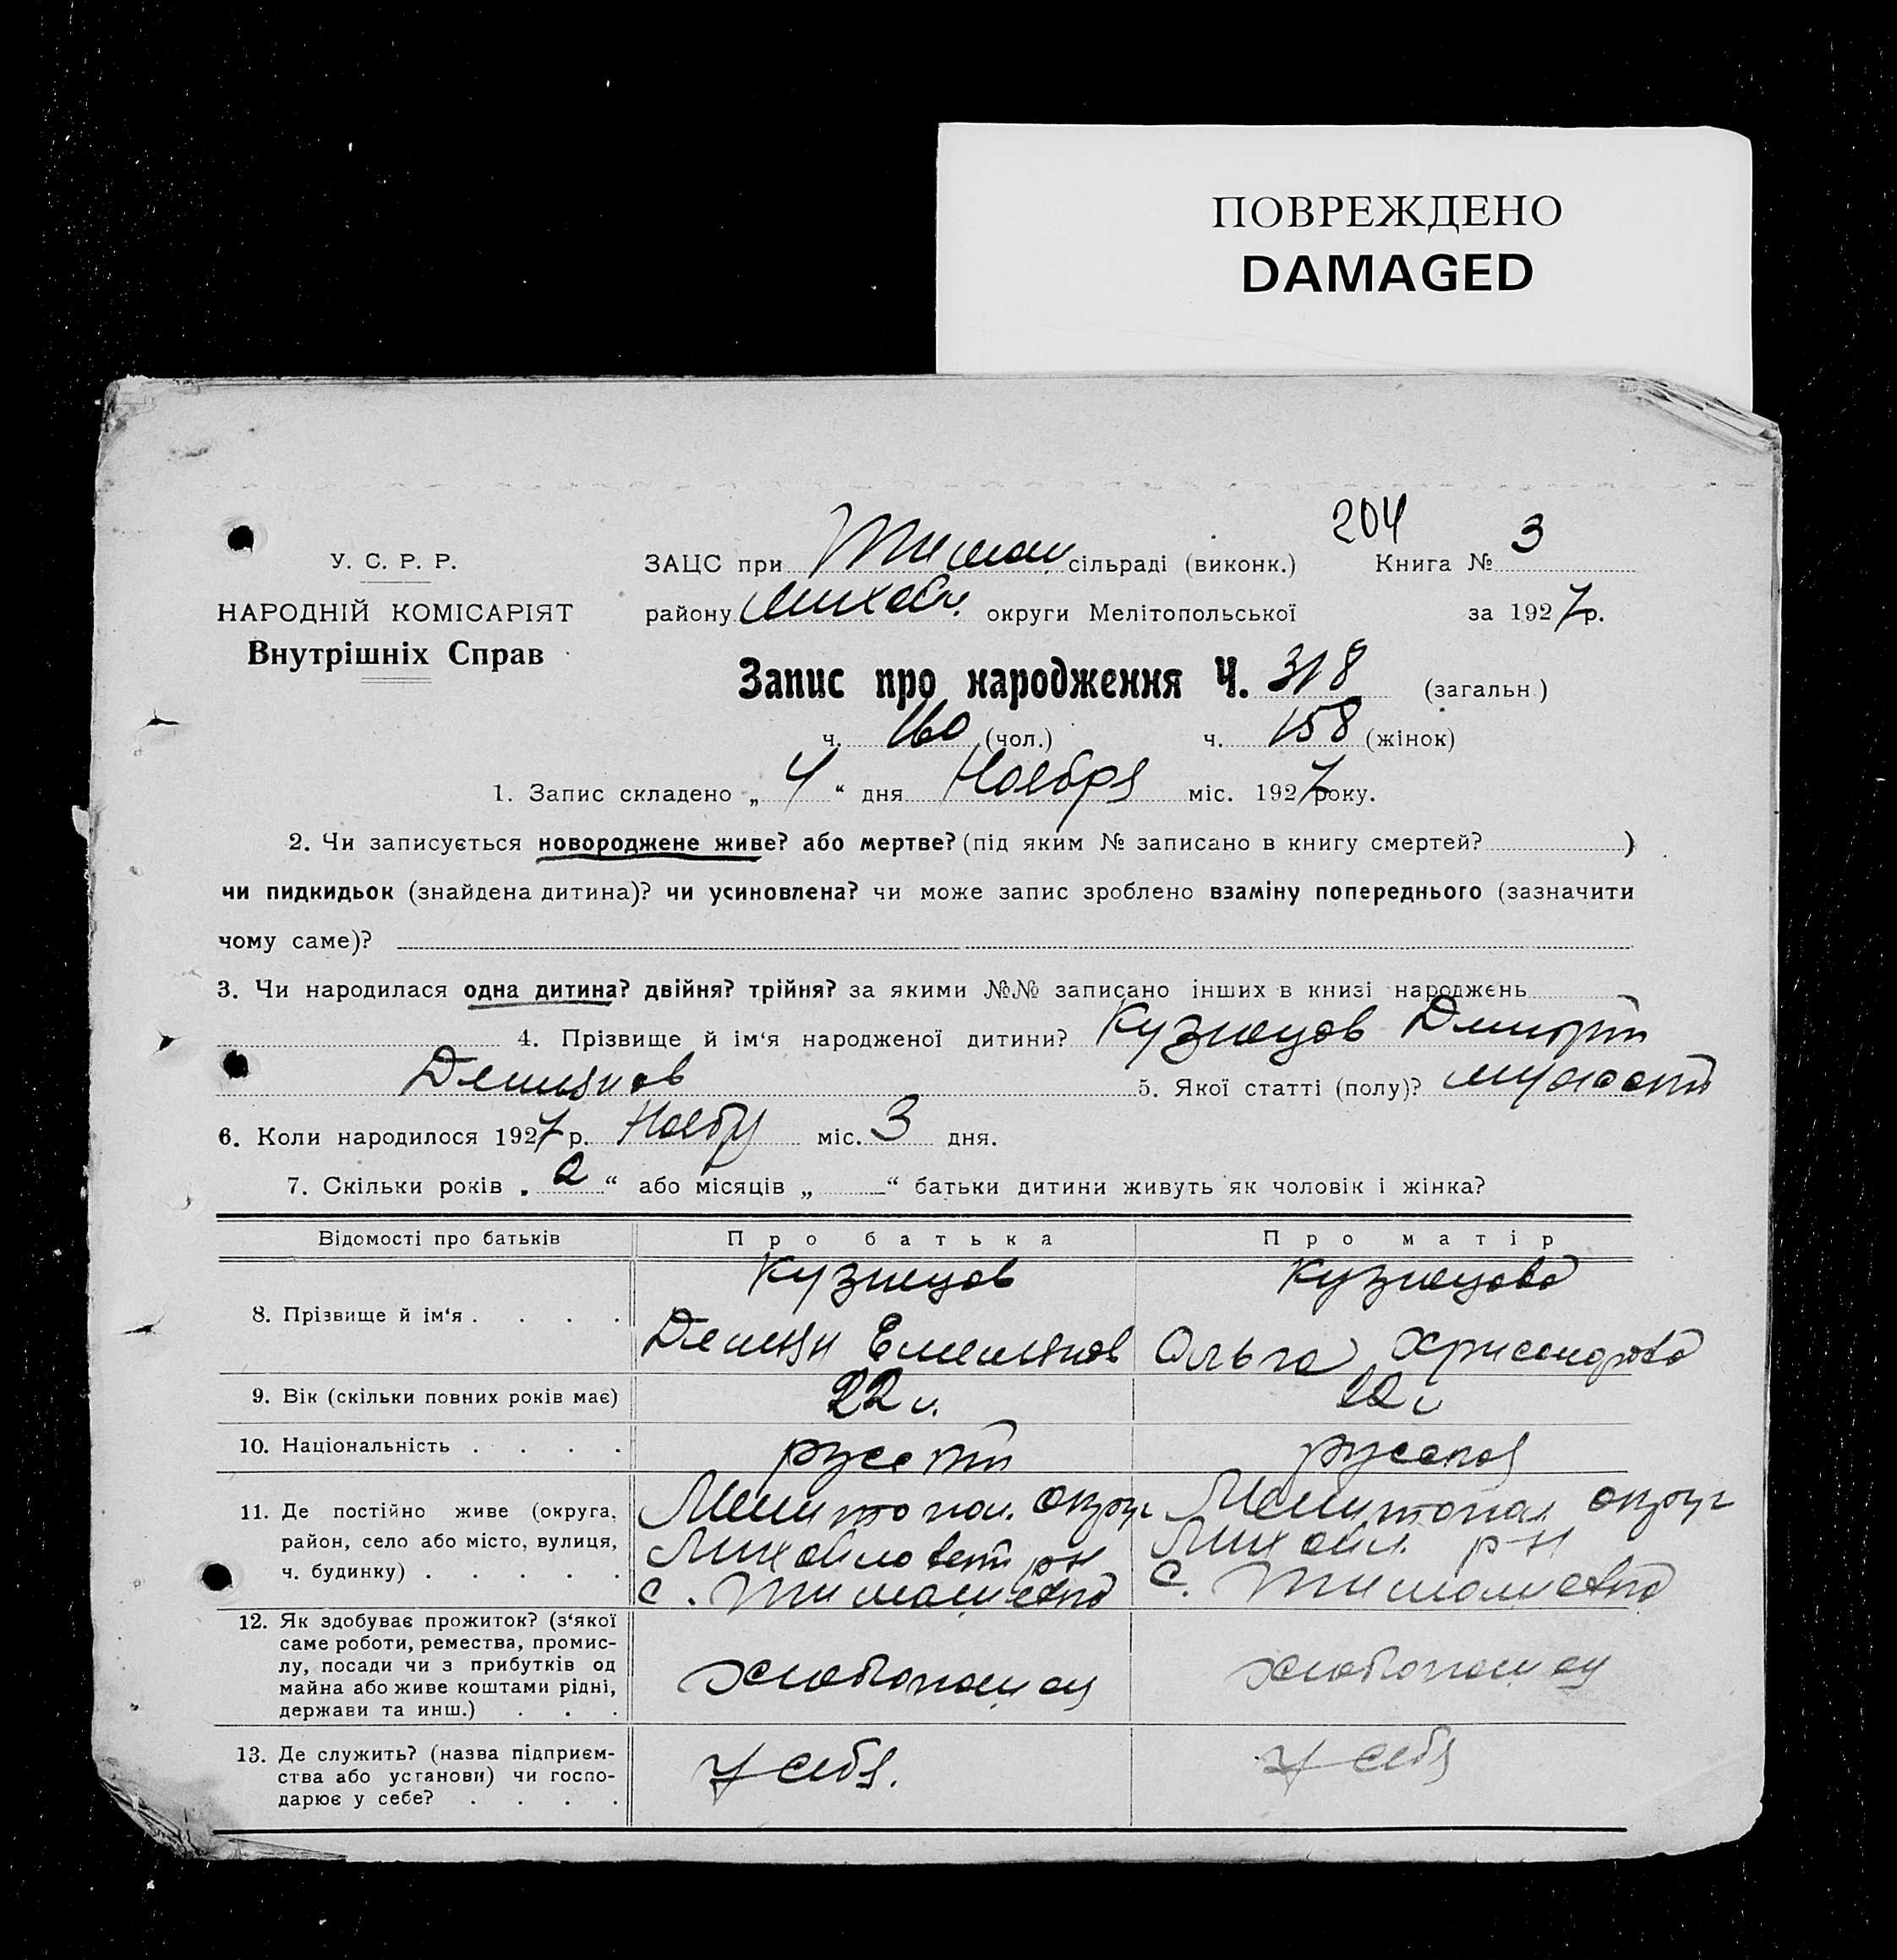 ПОВРЕЖДЕНО
DAMAGED
204
У. С. Р. Р.
ЗАЦС при Тимош. сільраді (виконк.) Книга № 3
НАРОДНІЙ КОМІСАРІЯТ
району Михайл. округи Мелітопольської за 1927 р.
Внутрішніх Справ
Запис про народження Ч. 318 (загальн.)
ч. 160 (чол.) ч. 158 (жінок)
1. Запис складено „ 4 “ дня Ноября міс. 1927 року.
2. Чи записується новороджене живе? або мертве? (під яким № записано в книгу смертей? )
чи пидкидьок (знайдена дитина)? чи усиновлена? чи може запис зроблено взаміну попереднього (зазначити
чому саме)?
3. Чи народилася одна дитина? двійня? трійня? за якими №№ записано інших в книзі народжень
4. Прізвище й ім‘я народженої дитини? Кузнецов Дмитрий
Демьянов 5. Якої статті (полу)?
6. Коли народилося 1927 р. Ноябр міс. 3 дня.
7. Скільки років „ 2 “ або місяців „ “ батьки дитини живуть як чоловік і жінка?
Відомості про батьків Про батька Про матір
Кузнецов Кузнецова
8. Прізвище й ім‘я . . . . Демьян Емельянов Ольга
9. Вік (скільки повних років має) 22 г. 22 г
10. Національність . . . . русский русская
11. Де постійно живе (округа, Мелитопол. округ Мелитопол округ
район, село або місто, вулиця, Михайловский рн Михайл. р-н
ч. будинку) . . . . . с. Тимошевка с. Тимошевка
12. Як здобуває прожиток? (з‘якої
саме роботи, ремества, промис-
лу, посади чи з прибутків од хлебопашец хлебопашец
майна або живе коштами рідні,
держави та инш.) . . .
13. Де служить? (назва підприєм- У себя. У себя
ства або установи) чи госпо-
дарює у себе? . . . .